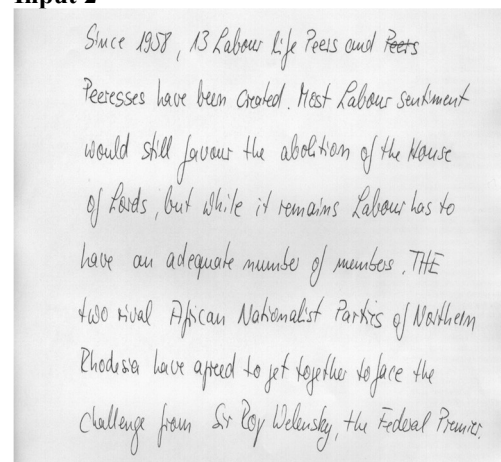 Input 2
Since 1958, 13 Labour life Peers and Peers
Peeresses have been created. Most Labour sentiment
would still favour the abolition of the House
of Lords, but while it remains Labour has to
have an adequate number of members. THE
two rival African Nationalist Parties of Northern
Rhodesia have agreed to get together to face the
challenge from Sir Roy Welensky, the Federal Premier.